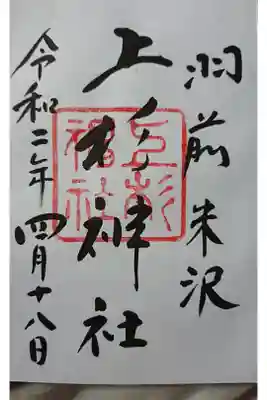 羽前米沢
上杉神社
令和二年四月十八日
上杉神社